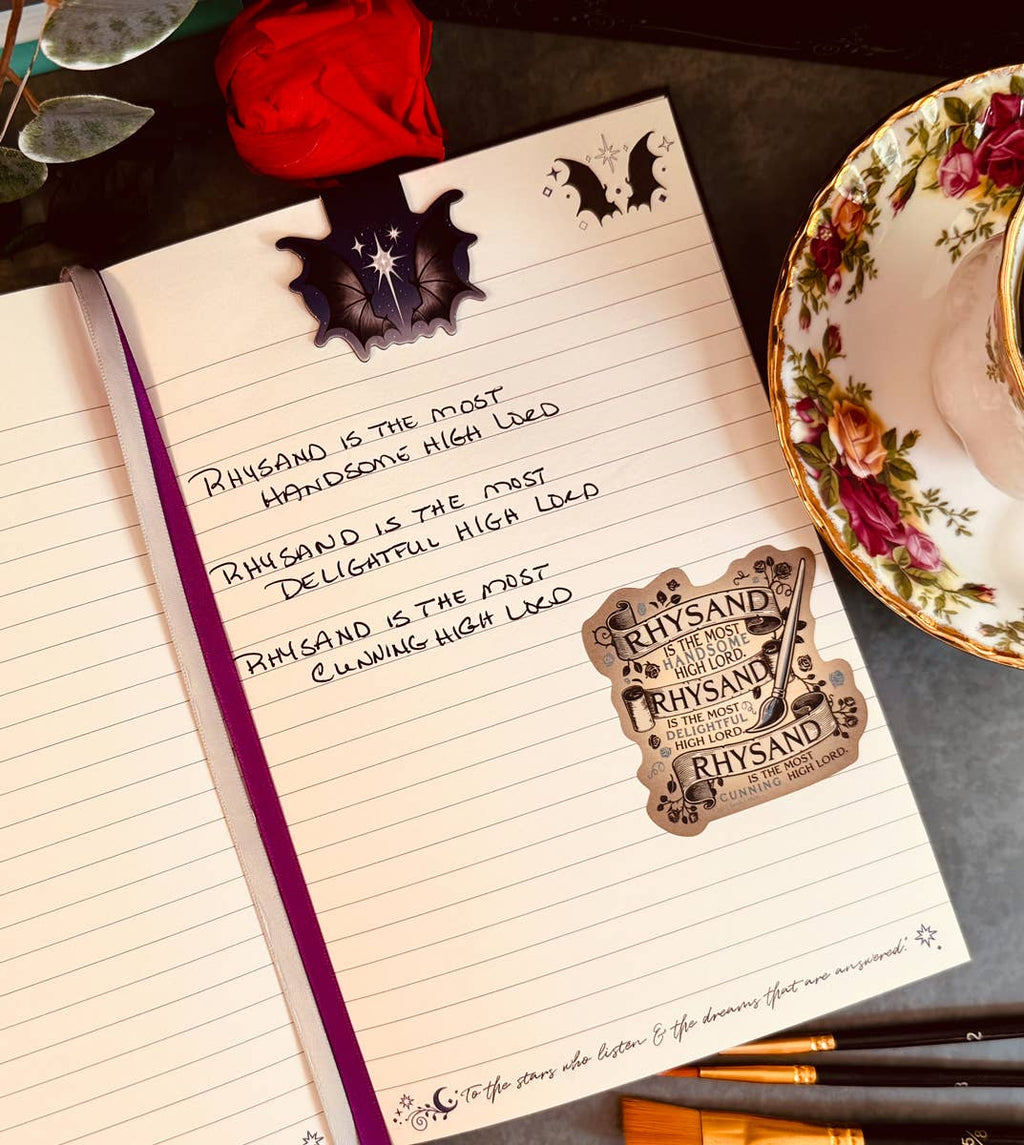 RHYSAND IS THE MOST
HANDSOME HIGH LORD
RHYSAND IS THE MOST
DELIGHTFUL HIGH LORD
RHYSAND IS THE MOST
CUNNING HIGH LORD
RHYSAND
IS THE MOST
HANDSOME
HIGH LORD.
RHYSAND
IS THE MOST
DELIGHTFUL
HIGH LORD.
RHYSAND
IS THE MOST
CUNNING HIGH LORD.
To the stars who listen & the dreams that are answered.
2
3
5/8